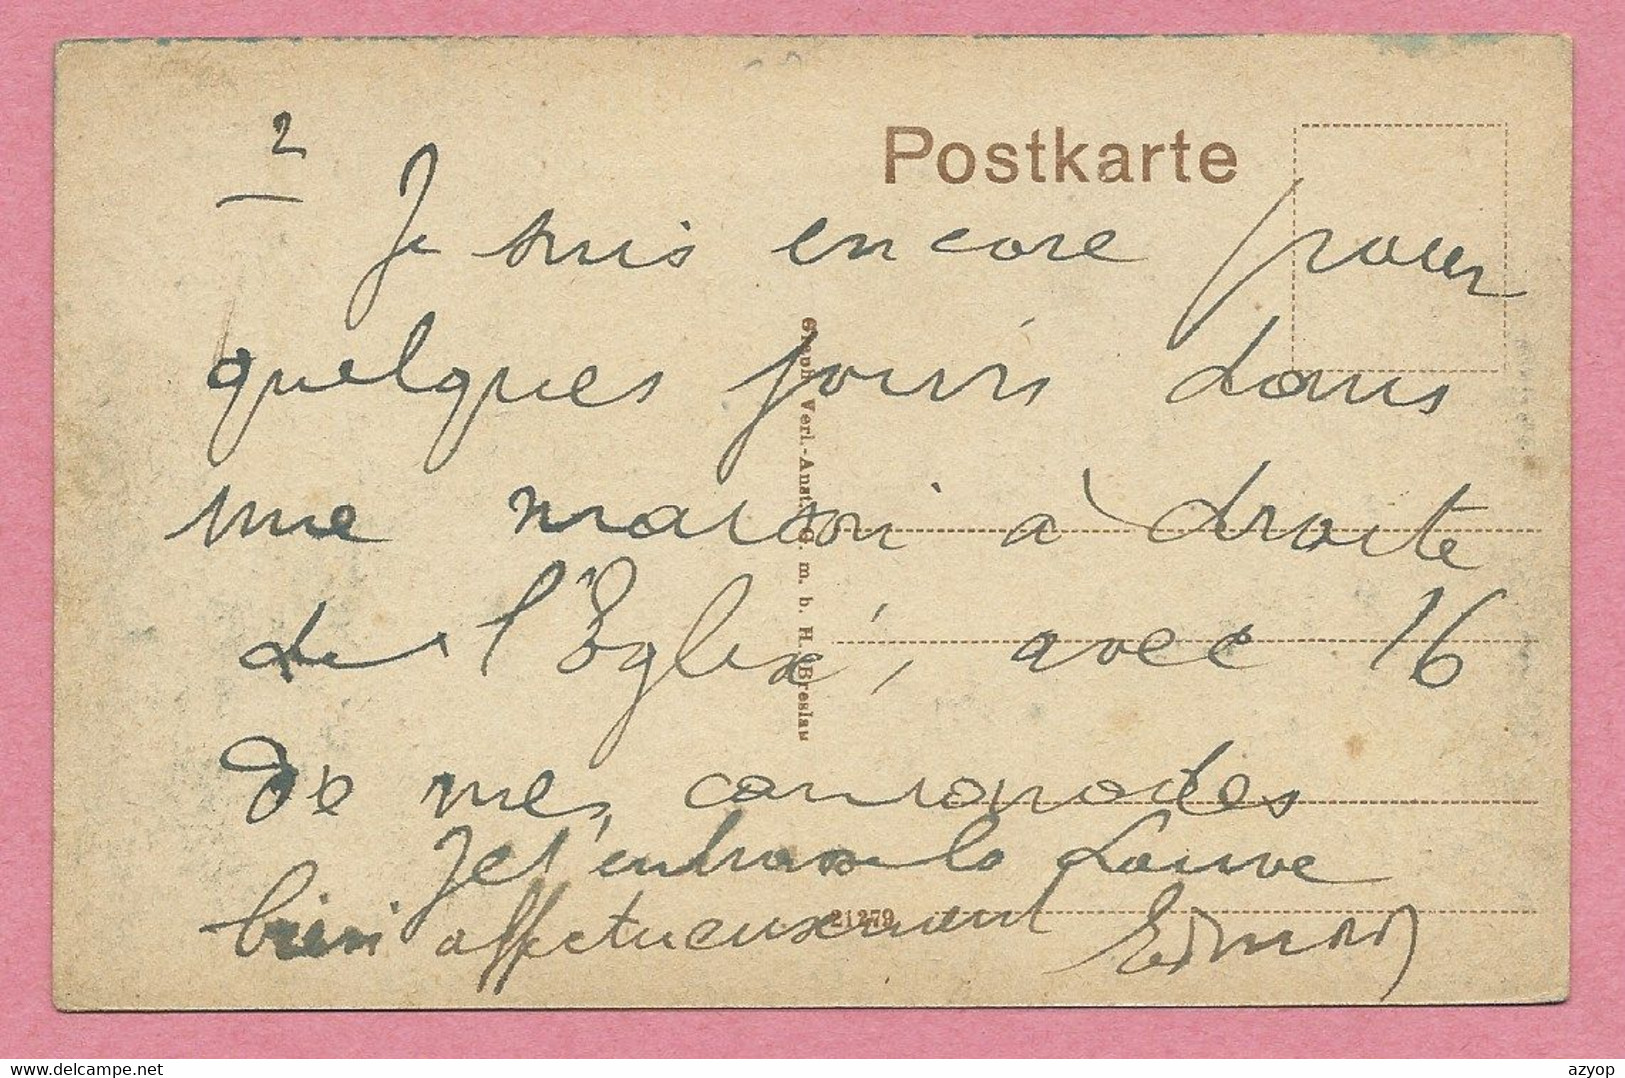 2
Postkarte
Je suis encore pour
quelques jours dans
une maison à droite
de l'Église, avec 16
de mes camarades
Je t'embrasse la Louve
bien affectueusement Edmond
Graph. Verl.-Anst. G. m. b. H. Breslau
21279
delcampe.net
azyop